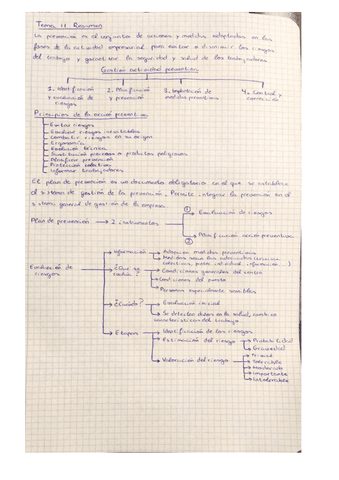 Tema 11 Resumen
La prevención es el conjunto de acciones y medidas adoptadas en las
fases de la actividad empresarial para evitar o disminuir los riesgos
del trabajo y garantizar la seguridad y salud de los trabajadores.
Gestión actividad preventiva
1. Identificación y evaluación de riesgos
2. Planificación y prevención
3. Implantación de medidas preventivas
4. Control y corrección
Principios de la acción preventiva
Evitar riesgos
Evaluar riesgos inevitables
Combatir riesgos en su origen
Ergonomía
Evolución técnica
Sustitución procesos o productos peligrosos
Planificar prevención
Protección colectiva
Informar trabajadores
El plan de prevención es un documento obligatorio en el que se establece
el sistema de gestión de la prevención. Permite integrar la prevención en el
sistema general de gestión de la empresa.
Plan de prevención → 2 instrumentos
① Evaluación de riesgos
Planificación acción preventiva
②
Evaluación de riesgos
Información
Adoptar medidas preventivas
Medidas
colectiva, individual, información
¿Qué se evalúa?
Condiciones generales del centro
Condiciones del puesto
Personas especialmente sensibles
¿Cuándo?
Evaluación inicial
Se detectan daños en la salud, cambios
características del trabajo
Etapas
Identificación de los riesgos
Estimación del riesgo
Probabilidad
Gravedad
Valoración del riesgo
Trivial
Tolerable
Moderado
Importante
Intolerable